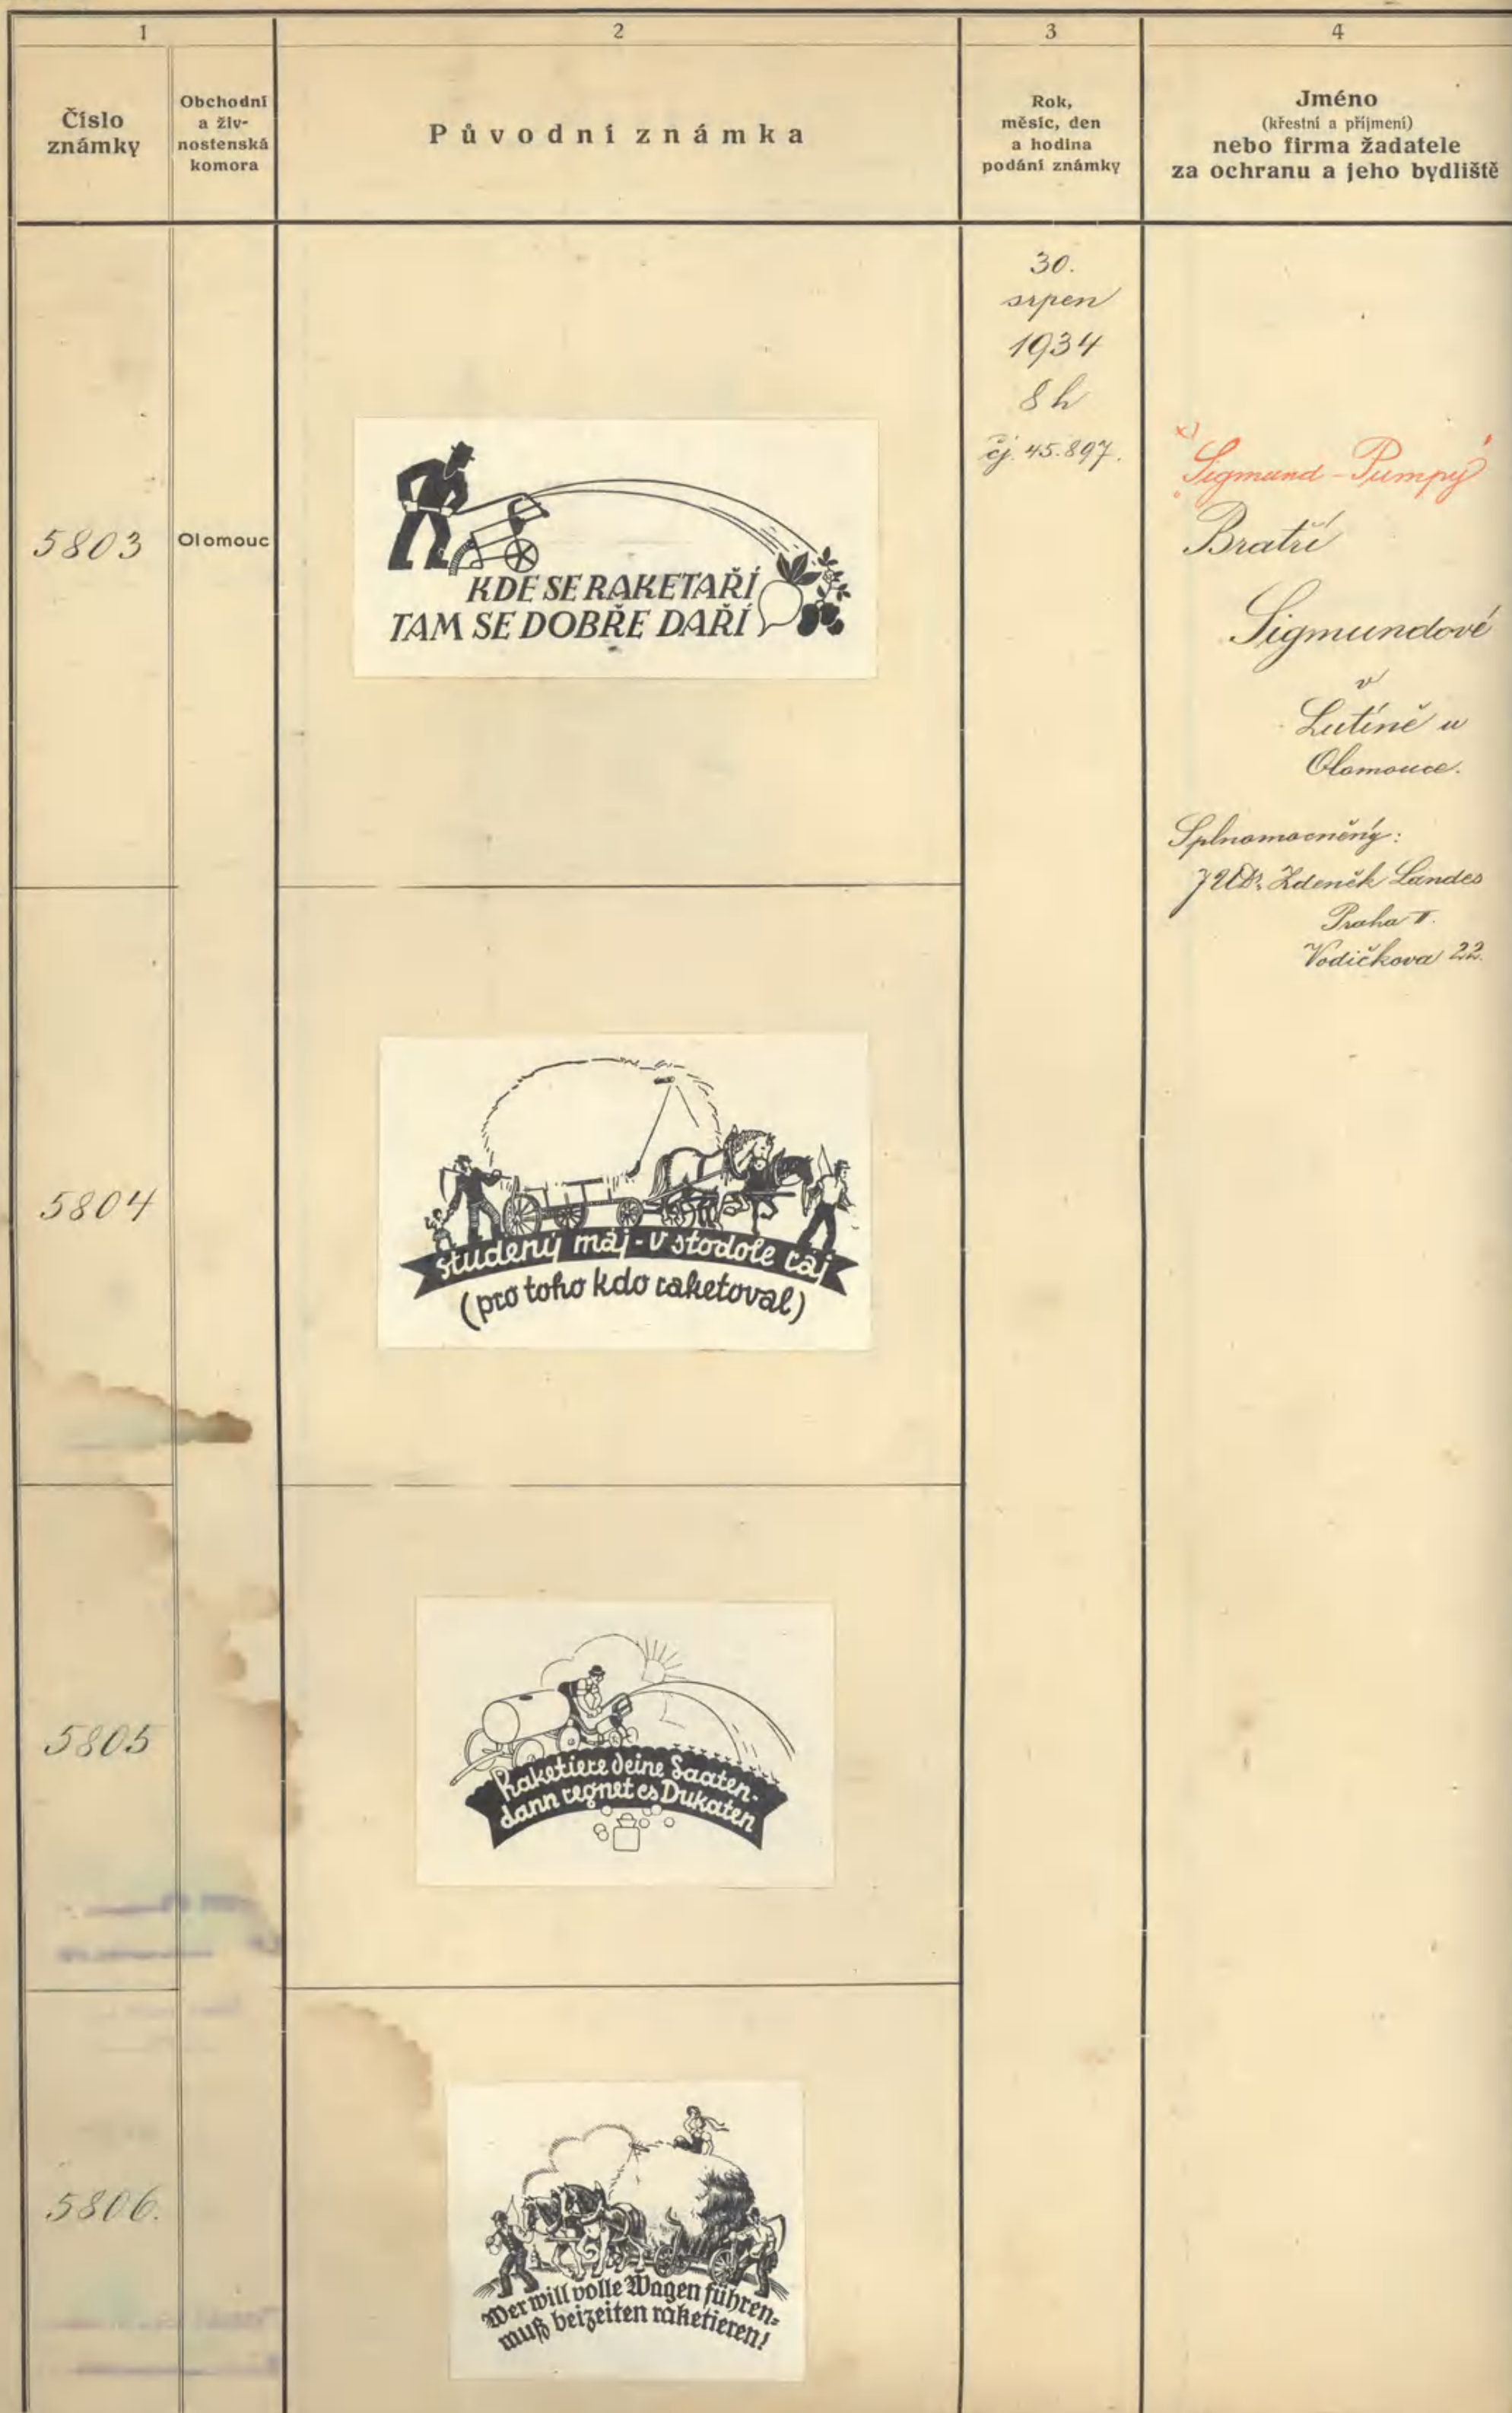 1
2
3
4
Číslo
známky
Obchodní
a živ-
nostenská
komora
Původní známka
Rok,
měsíc, den
a hodina
podání známky
Jméno
(křestní a příjmení)
nebo firma žadatele
za ochranu a jeho bydliště
5803
Olomouc
KDE SE RAKETAŘÍ
TAM SE DOBŘE DAŘÍ
30.
srpen
1934
8 h
čj. 45.897.
x)
"Sigmund - Pumpy"
Bratří
Sigmundové
v
Lutíně u
Olomouce.
Splnomocněný:
JUDr. Zdeněk Landes
Praha II.
Vodičkova 22.
5804
studený máj - v stodole ráj
(pro toho kdo raketoval)
5805
Raketiere deine Saaten-
dann regnet es Dukaten
5806.
Wer will volle Wagen führen-
muß beizeiten raketieren!